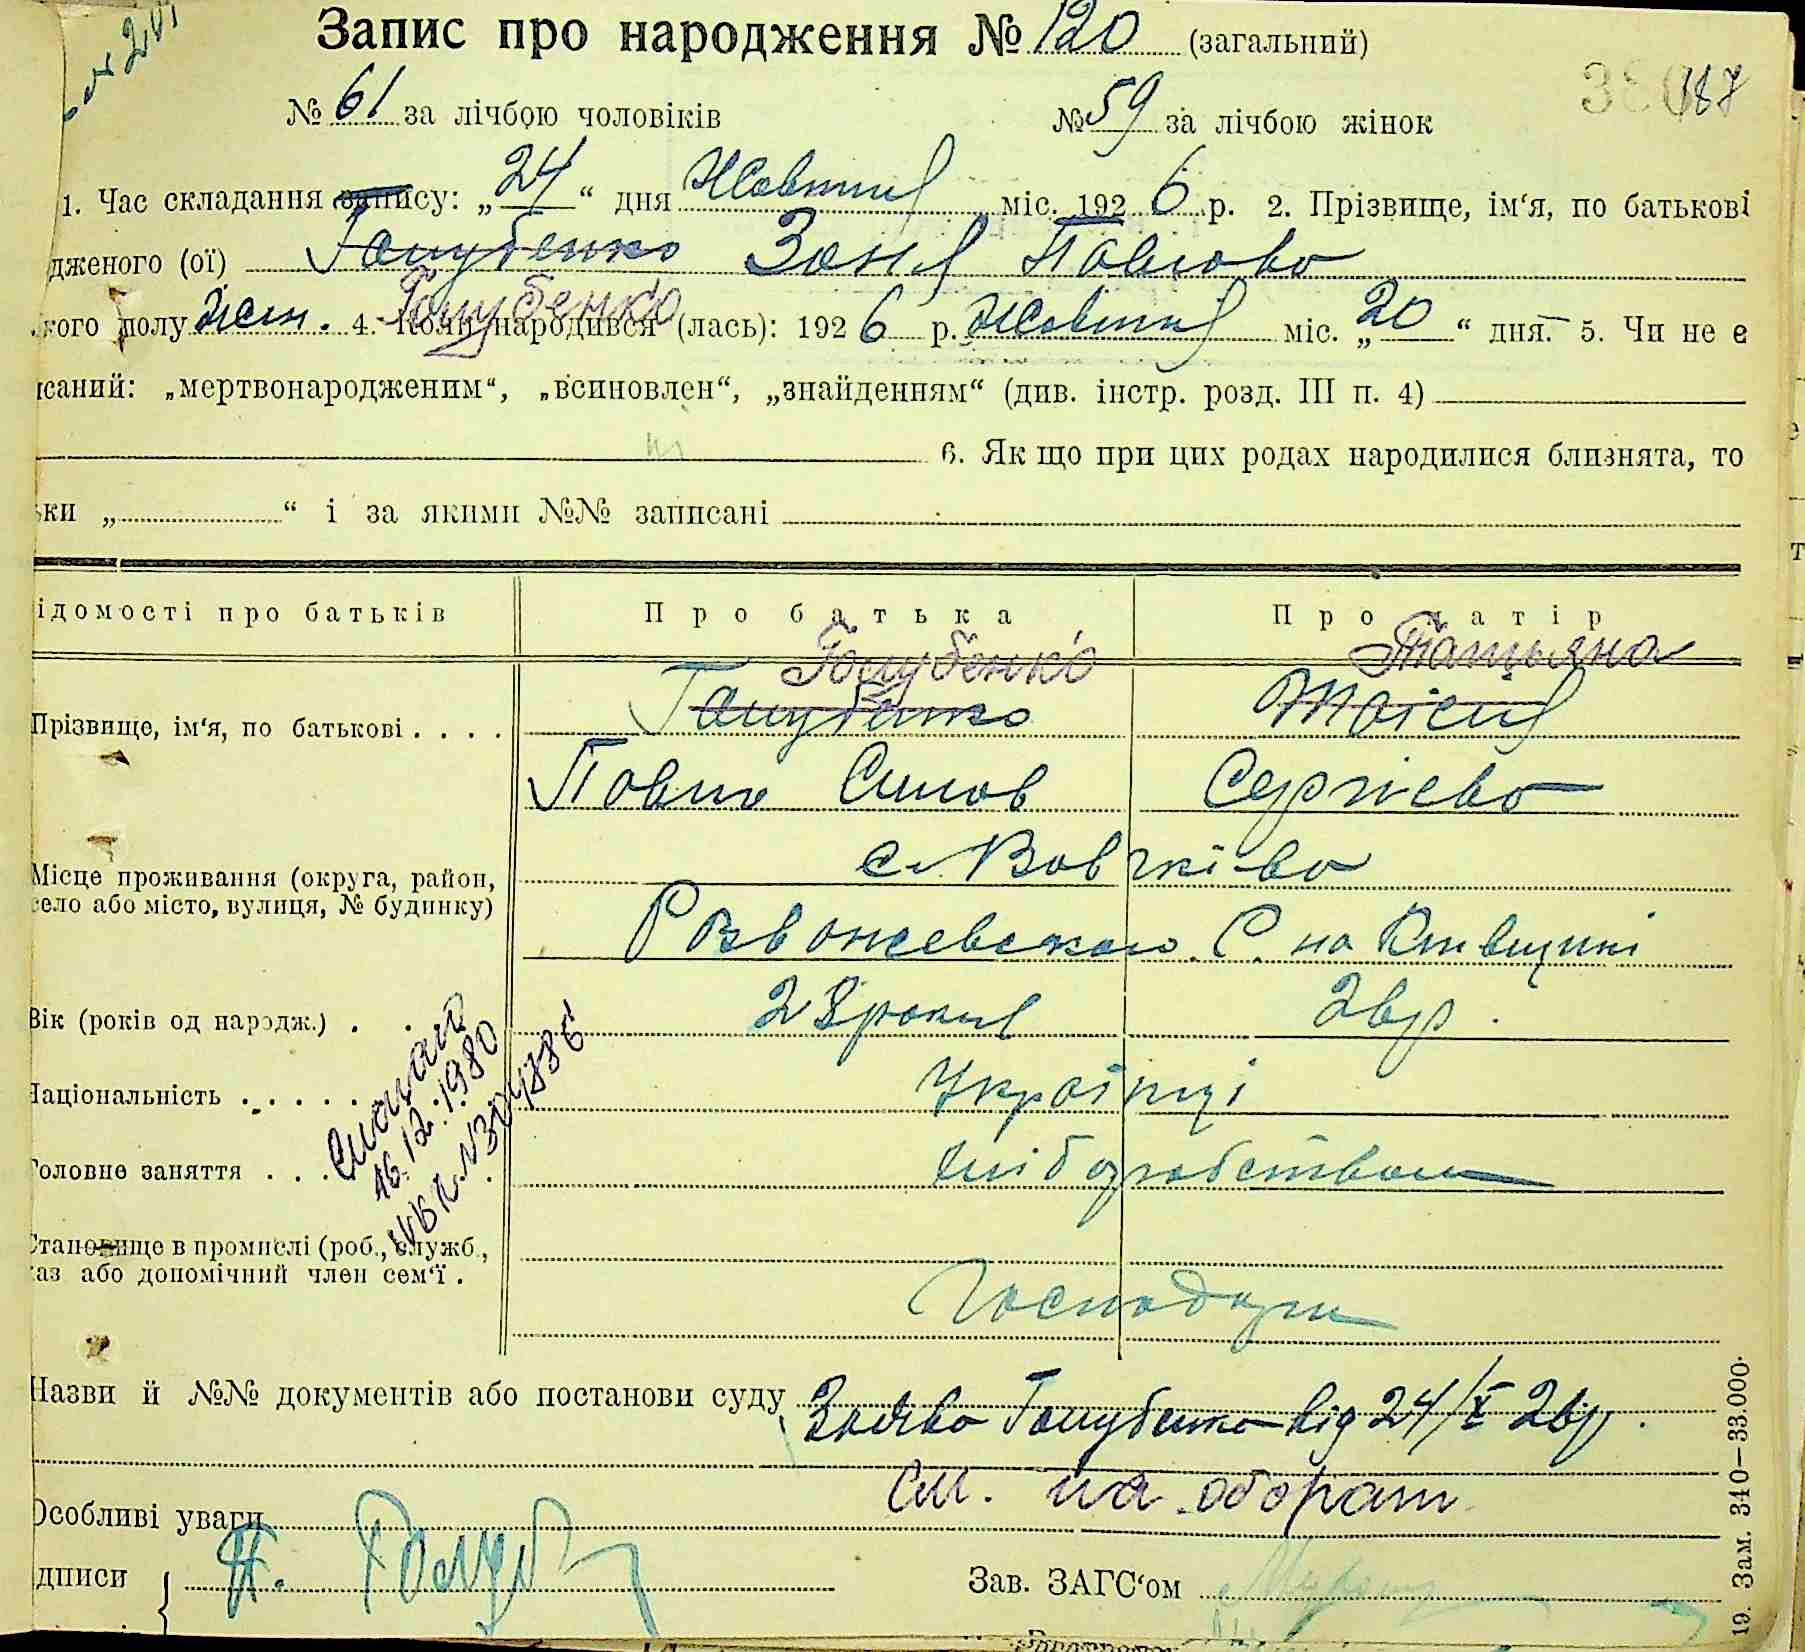 Запис про народження № 120 (загальний)
№ 61 за лічбою чоловіків № 59 за лічбою жінок
187
1. Час складання запису: „24“ дня Жовтня міс. 1926 р. 2. Прізвище, ім‘я, по батькові
дженого (ої) Галубенко Зоня Павлова
Голубенко
кого полу жін. 4. Коли народився (лась): 1926 р. Жовтня міс. „20“ дня. 5. Чи не є
исаний: „мертвонародженим“, „всиновлен“, „знайденням“ (див. інстр. розд. III п. 4)
6. Як що при цих родах народилися близнята, то
ьки „ “ і за якими №№ записані
ідомості про батьків Про батька Про матір
Голубенко Татьяна
Прізвище, ім‘я, по батькові . . . . Галубенко
Павло Силов Сергієва
Місце проживання (округа, район, село або місто, вулиця, № будинку) с. Вовчківа
Розважевського Р. на Київщині
Вік (років од народж.) . 28 років 26 р.
Національність . . . . . Українці
Головне заняття . . . хліборобством
Становище в промислі (роб., служб.,
аз або допомічний член сем‘ї .
Господари
16.12.1980
Назви й №№ документів або постанови суду Заява Голубенка від 24/X 26 р.
См. на оборот
Особливі уваги
дписи П. Голуб Зав. ЗАГС‘ом
19. Зам. 340—33.000.